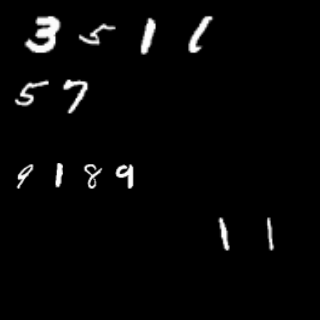 3 5 1 1
5 7
9 1 8 9
1 1